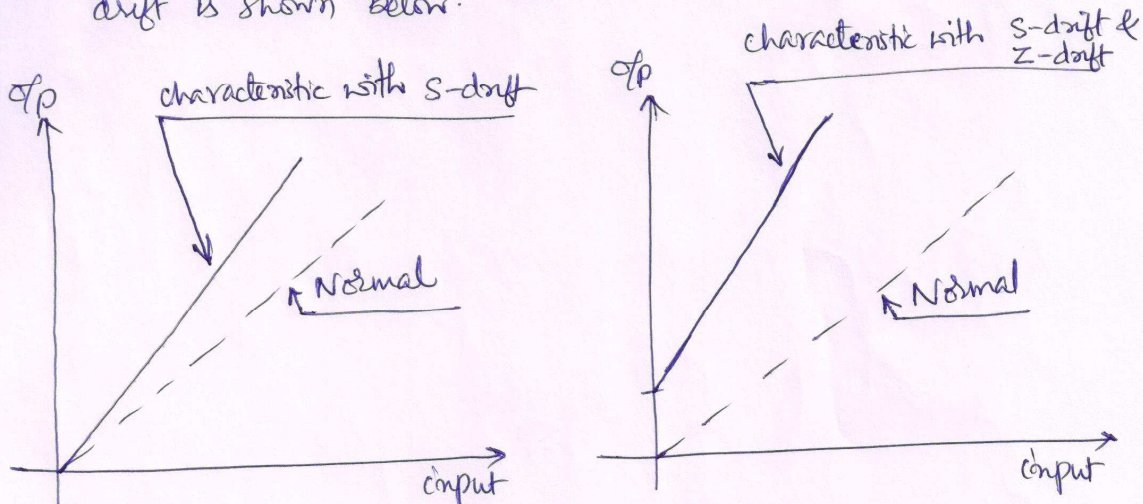 drift is shown below.
o/p
characteristic with S-drift
Normal
input
characteristic with S-drift &
Z-drift
o/p
Normal
input